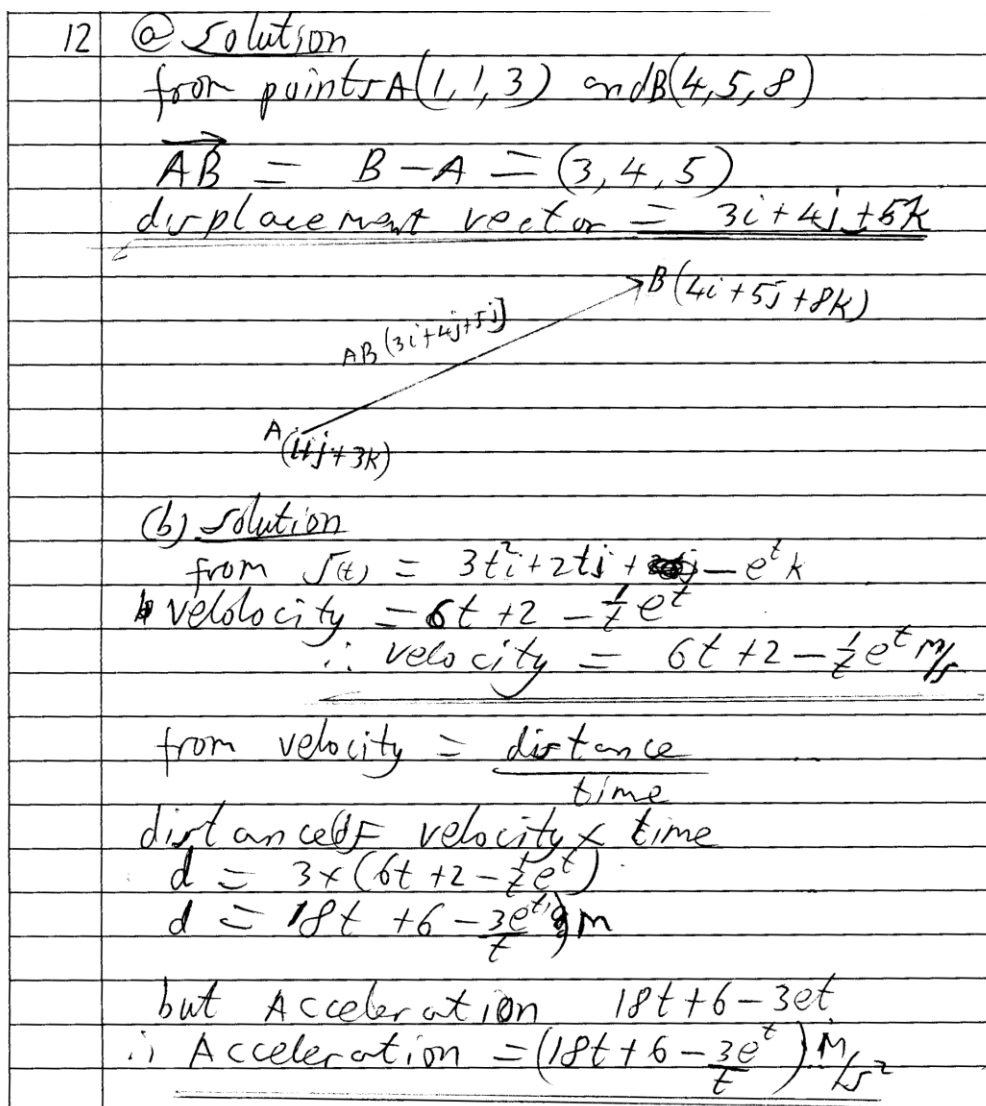 12 (a) solution
from points A(1, 1, 3) and B(4, 5, 8)
AB = B - A = (3, 4, 5)
displacement vector = 3i + 4j + 5k
B (4i + 5j + 8k)
AB (3i + 4j + 5j)
A (i+j + 3k)
(b) solution
from s(t) = 3t²i + 2tj + - e^t k
velolocity = 6t + 2 - 1/t e^t
∴ velocity = 6t + 2 - 1/t e^t m/s
from velocity = distance / time
distance(d) = velocity × time
d = 3 × (6t + 2 - 1/t e^t)
d = 18t + 6 - 3e^t/t m
but Acceleration 18t + 6 - 3et
∴ Acceleration = (18t + 6 - 3e^t/t) M/s²